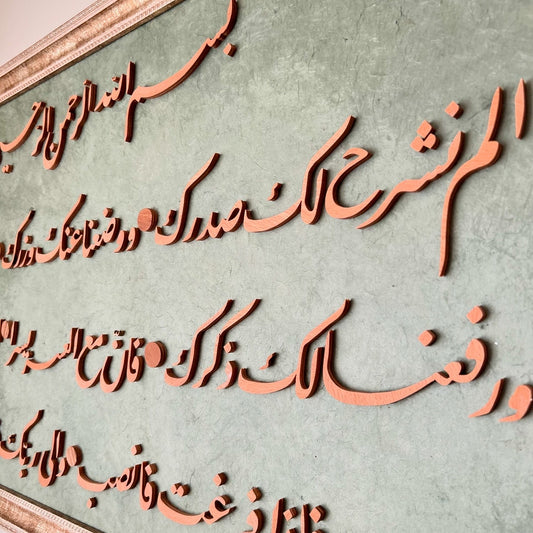 بسم الله الرحمن الرحیم
الم نشرح لک صدرک ووضعنا عنک وزرک
ورفعنا لک ذکرک فان مع العسر یسرا
فاذا فرغت فانصب والی ربک